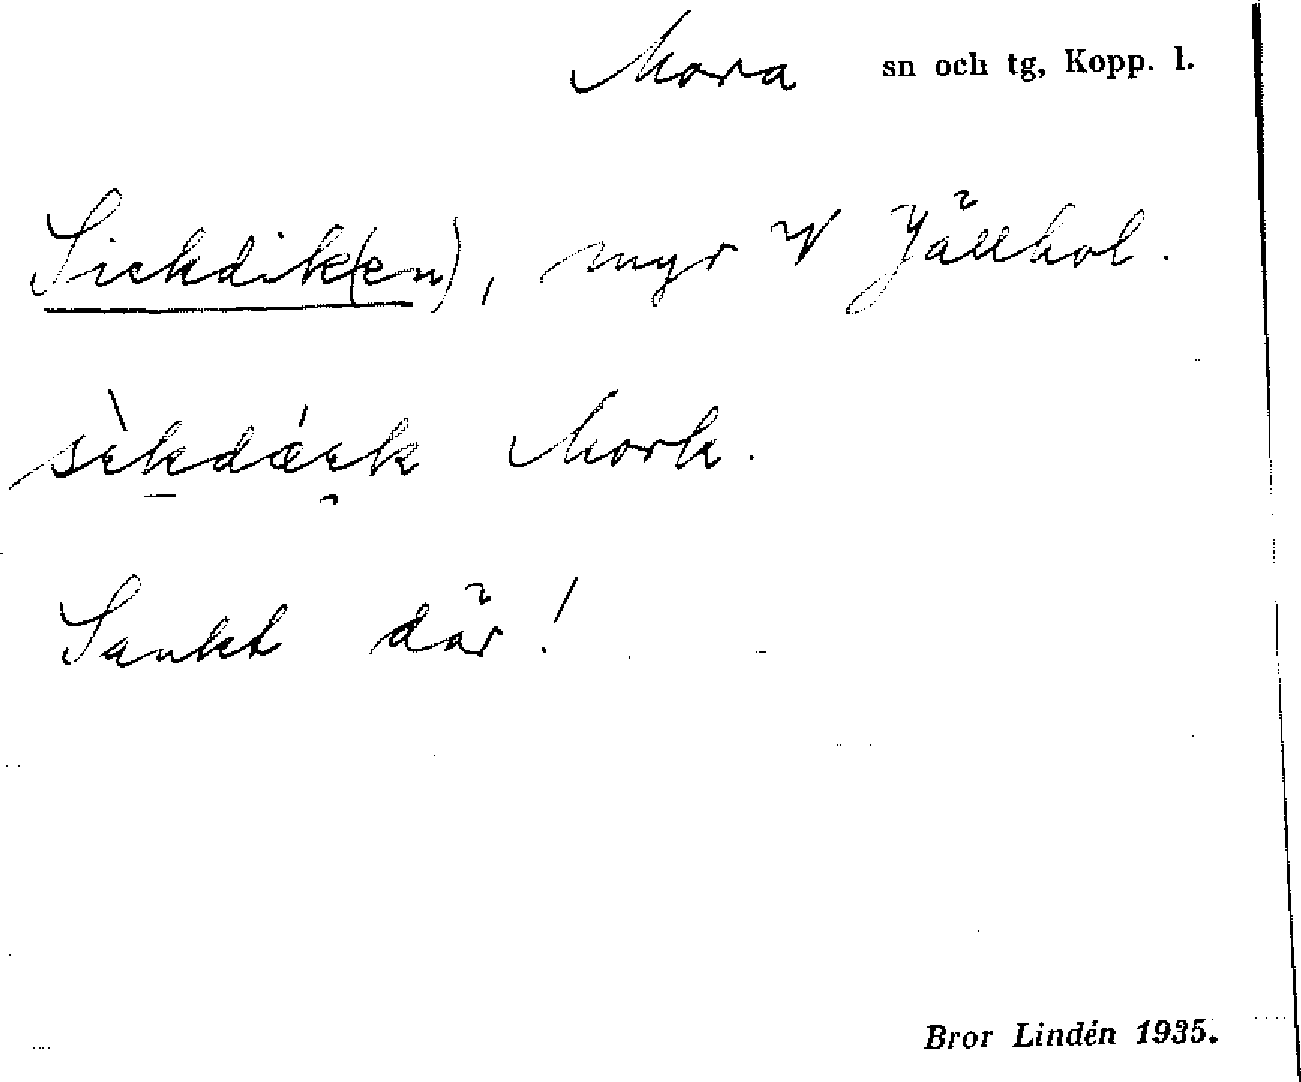 Mora sn och tg, Kopp. l.
Sickdik(en), myr V Jällhol.
sìkdáek Mork.
Sankt där!
Bror Lindén 1935.